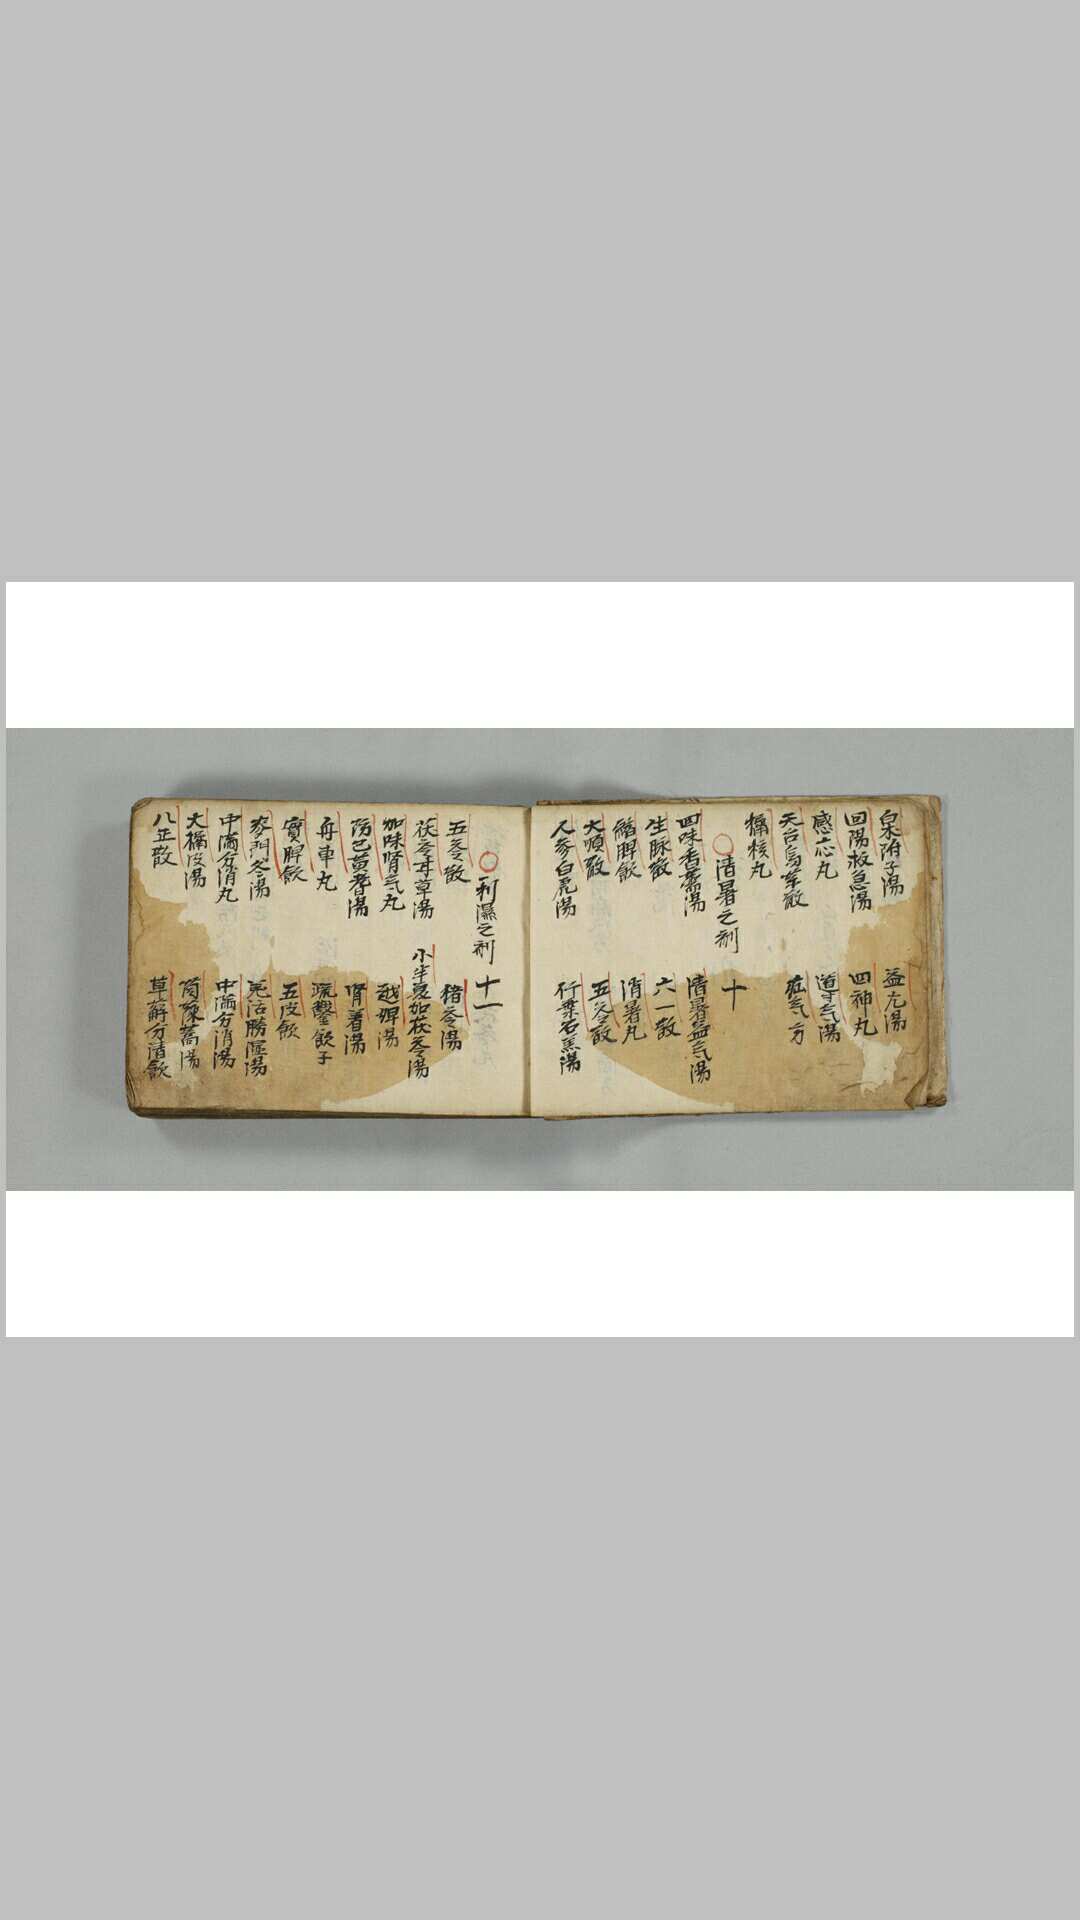 白朮附子湯　益元湯
回陽救急湯　四神丸
感应丸　導气湯
天台烏藥散　疝气方
橘核丸
○清暑之剤　十
四味香薷湯　清暑益气湯
生脉散　六一散
縮脾飲　消暑丸
大順散　五苓散
人参白虎湯　竹葉石羔湯
○利濕之剤　十一
五苓散　猪苓湯
茯苓甘草湯　小半夏加茯苓湯
加味腎气丸　越婢湯
防己黄耆湯　腎着湯
舟車丸　疏鑿飲子
實脾飲　五皮飲
麥門冬湯　羌活勝湿湯
中滿分消丸　中滿分消湯
大橘皮湯　茵蔯蒿湯
八正散　萆薢分清飲